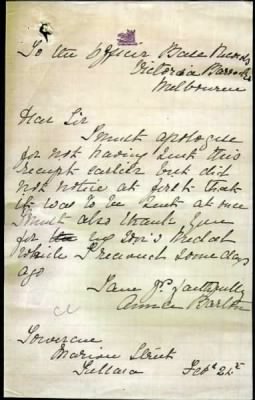 To the Officer Base Records
Victoria Barracks
Melbourne
Dear Sir
I must apologise
for not having sent this
receipt earlier but did
not notice at first that
it was to be sent at once
I must also thank you
for my Son's Medal
which I received some days
ago
I am yrs faithfully
Annie Barton
Marion Street
Feby 24th